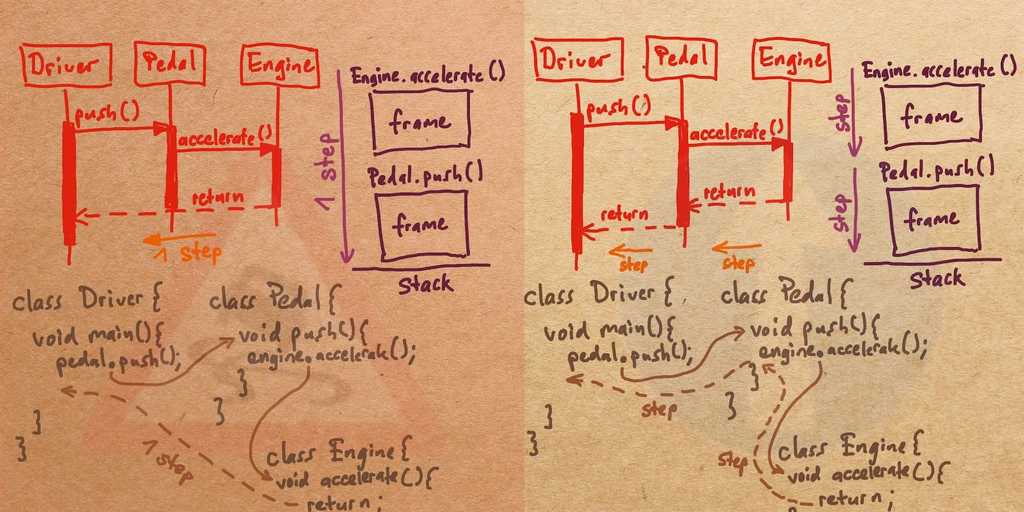 Driver
Pedal
Engine
push()
accelerate()
return
1 step
1 step
Engine.accelerate()
frame
Pedal.push()
frame
Stack
class Driver {
void main(){
pedal.push();
}
}
class Pedal {
void push(){
engine.accelerate();
}
}
1 step
class Engine {
void accelerate(){
return;
Driver
Pedal
Engine
push()
accelerate()
return
return
step
step
step
step
Engine.accelerate()
frame
Pedal.push()
frame
Stack
class Driver {
void main(){
pedal.push();
}
}
class Pedal {
void push(){
engine.accelerate();
}
}
step
step
class Engine {
void accelerate(){
return;